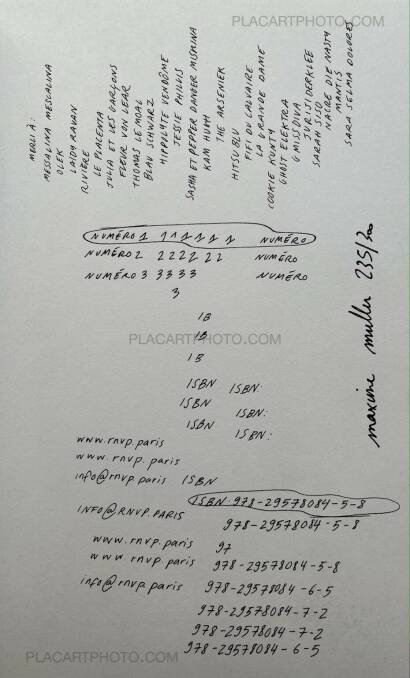 PLACARTPHOTO.COM
MERCI À:
MESSALINA MESCALINA
OLEK
LAIDY RAVAN
RIVIÈRE
LE PACENTA
JULIA ET LES GARÇONS
FOEUR VON LEAR
THOMAS LE MOAL
BLAU SCHWARZ
HIPPOLYTE VENDÔME
JESSIE PHILLIS
SASHA ET PEPPER DANGER MISMINA
KAM HUGH
THE ARSENIEK
HITSU BLV
FIFI DU CALVAIRE
LA GRANDE DAME
COOKIE KUNTY
GHOST ELEKTRA
G MISS DIVA
JURIJI DERKLEE
SARAH SISO
NACRE DIE NASTY
MANTIS
SARA SELMA DOLORES
NUMÉRO 1 1 1 1 1 1 1 NUMÉRO
NUMÉRO 2 2222 22 NUMÉRO
NUMÉRO 3 3333 NUMÉRO
3
maxime muller 235/300
IB
IB
PLACARTPHOTO.COM
IB
ISBN ISBN:
ISBN ISBN:
ISBN ISBN:
www.rnvp.paris
www.rnvp.paris
info@rnvp.paris ISBN
ISBN 978-29578084-5-8
INFO@RNVP.PARIS 978-29578084-5-8
www.rnvp.paris 97
www.rnvp.paris 978-29578084-5-8
info@rnvp.paris 978-29578084-6-5
978-29578084-7-2
978-29578084-7-2
978-29578084-6-5
PLACARTPHOTO.COM